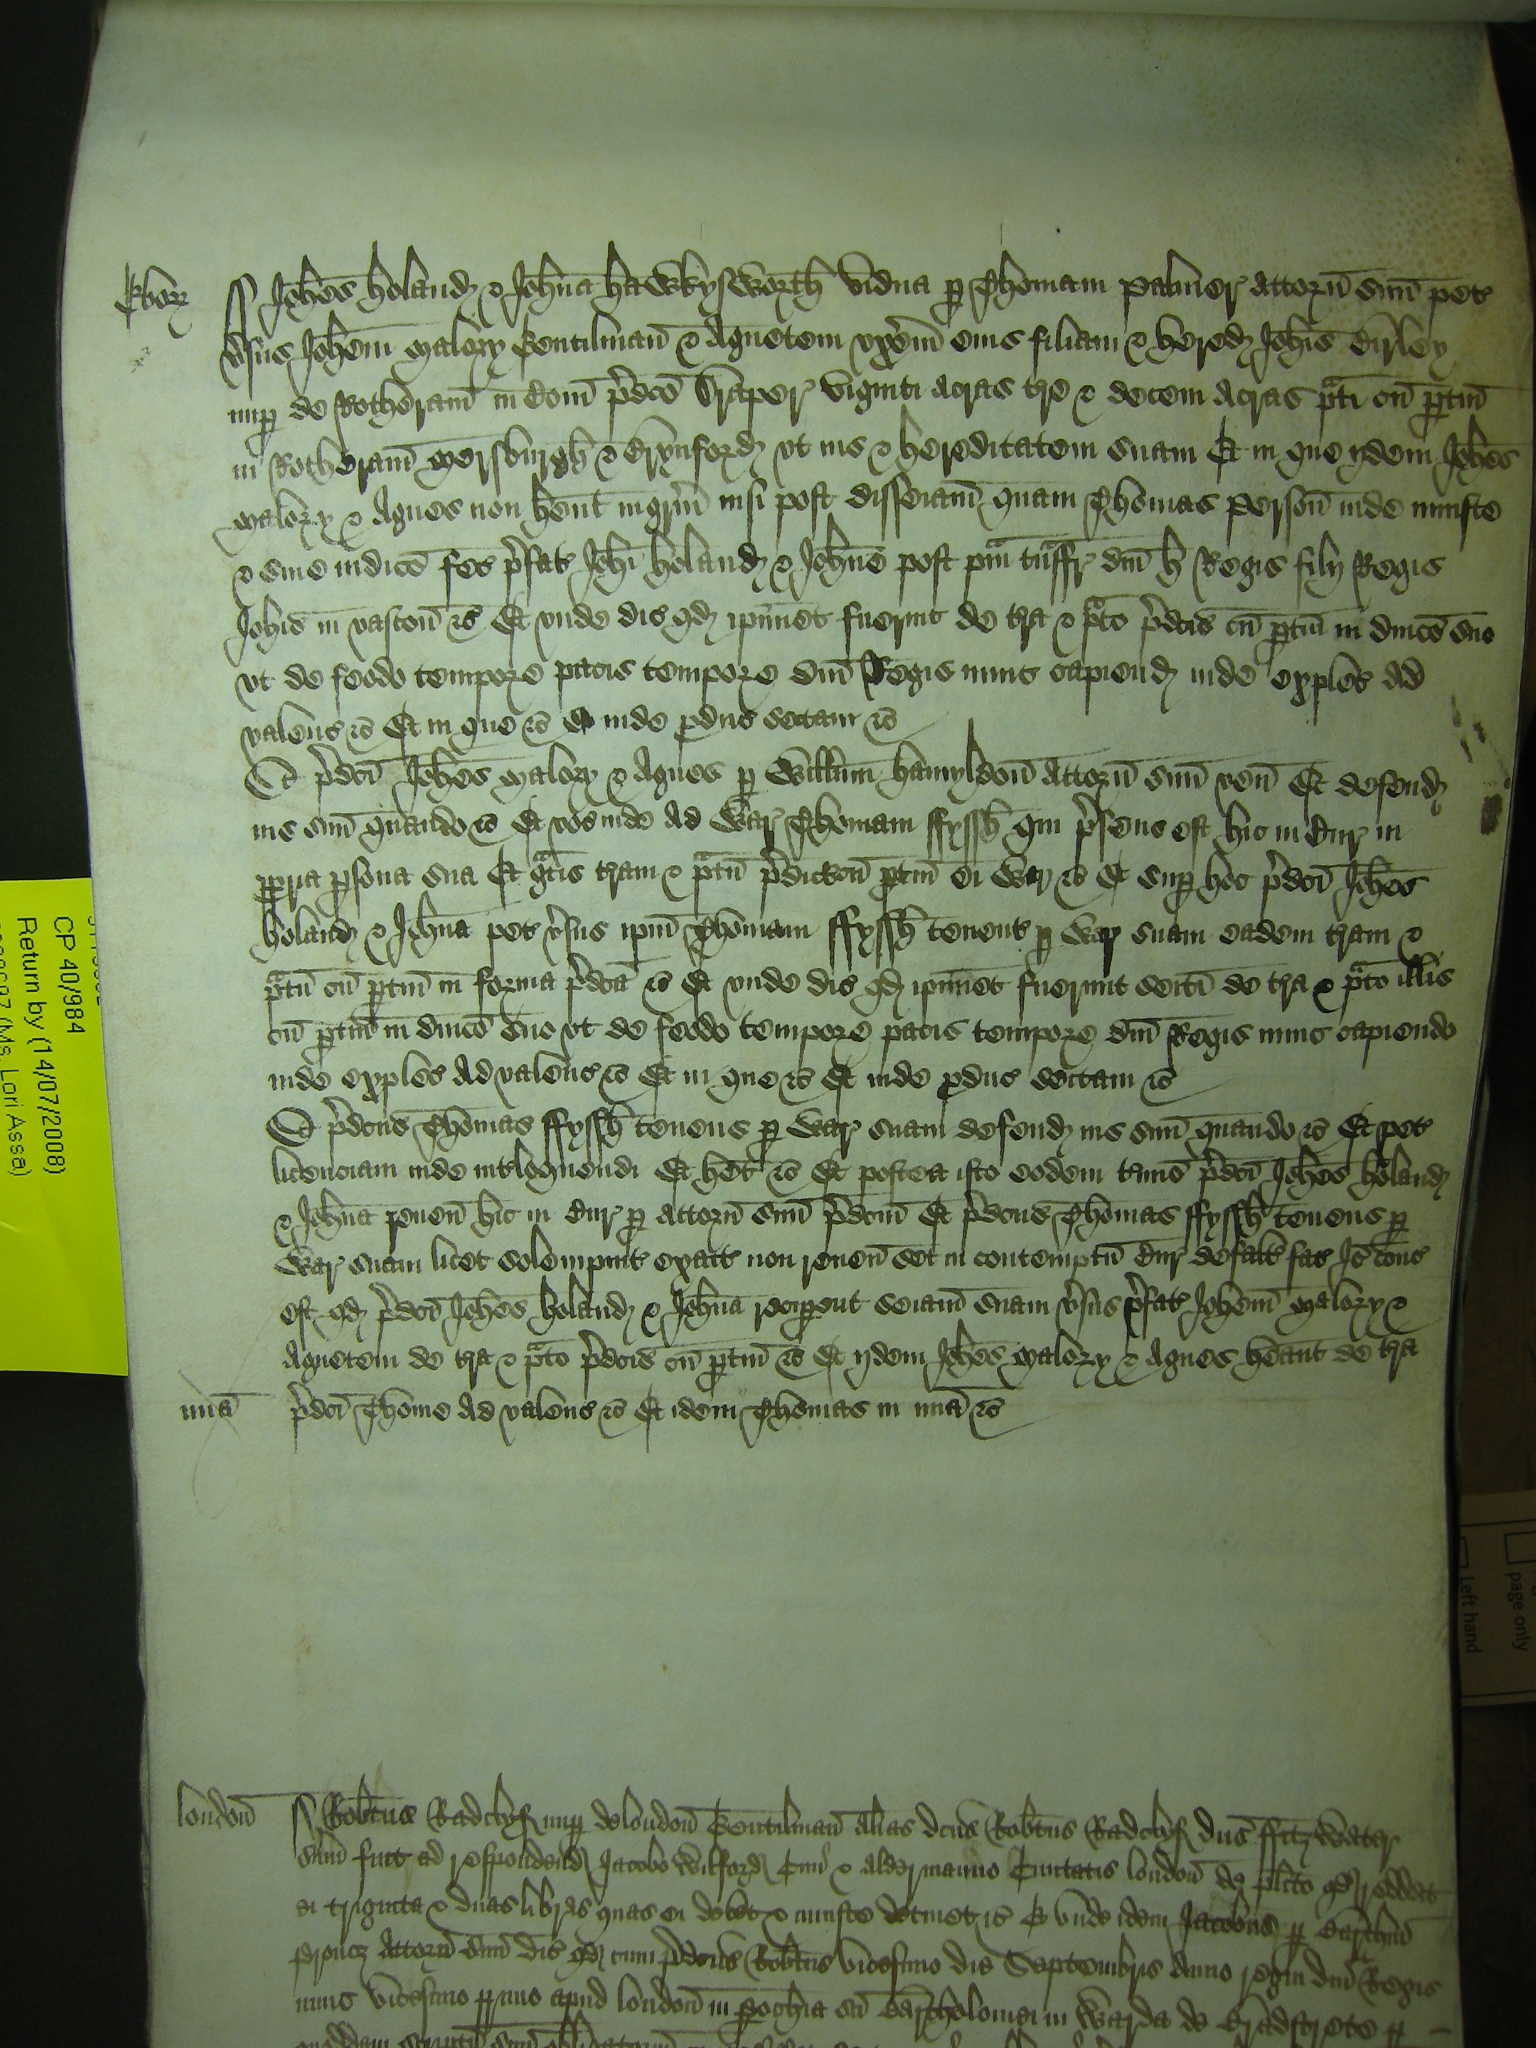 Ebor
Joh̄es holand & Joh̄na hawkysworth vidua p Thomam Palmer attorn̄ suū pet
v̄sus Joh̄em malory Gentilman̄ & Agnetem vx̄em eius filiam & hered Joh̄is
nup de Rotheram̄ in Com̄ p̄dc̄o Draper viginti acras t̄re & decem acras p̄ti cū p̄tin̄
in Rotheram̄ & vt ius & hereditatem suam Et in que ijdem Joh̄es
malory & Agnes non hent ingr̄m nisi post disseiam̄ quam Thomas Person̄ inde iniuste
& sine iudic̄o fec̄ p̄fat Joh̄i holand & Joh̄ne post p̄m t̄nsfr dn̄i h Regis filij Regis
Joh̄is in vascon̄ &c̄ Et vnde dic̄ qd ip̄imet fuerunt de t̄ra & p̄to p̄dc̄is cū p̄tin̄ in dn̄ico suo
vt de feodo tempore pacis tempore dn̄i Regis nunc capiend inde exples ad
valenc̄ &c̄ Et in que &c̄ Et inde p̄duc̄ sectam &c̄
Et p̄dc̄i Joh̄es malory & Agnes p Willm̄ hamyldon̄ attorn̄ suū ven̄ Et defend
ius suū quando &c̄ Et voc̄ inde ad War Thomam ffyssh̄ qui p̄sens est hic in Cur in
p̄pria p̄sona sua Et gr̄tis t̄ram & p̄tū p̄dict cū p̄tin̄ ei War &c̄ Et sup hoc p̄dc̄i Joh̄es
holand & Joh̄na pet v̄sus ip̄m Thomam ffyssh̄ tenent p War suam eadem t̄ram &
p̄tū cū p̄tin̄ in forma p̄dc̄a &c̄ Et vnde dic̄ qd ip̄imet fuerunt sei̅ti de t̄ra & p̄to illis
cū p̄tin̄ in dn̄ico suo vt de feodo tempore pacis tempore dn̄i Regis nunc capiendo
inde exples ad valenc̄ &c̄ Et in que &c̄ Et inde p̄duc̄ sectam &c̄
Et p̄dc̄us Thomas ffyssh̄ tenens p War suam defend ius suū quando &c̄ Et pet
licenciam inde int̄loquendi Et het &c̄ Et postea isto eodem t̄mīo p̄dc̄i Joh̄es holand
& Joh̄na reuen̄ hic in Cur p attorn̄ suū p̄dc̄m Et p̄dc̄us Thomas ffyssh̄ tenens p
War suam licet solempnit exact non reuen̄ set in contemptū Cur defalt fac̄ Jo cons
est qd p̄dc̄i Joh̄es holand & Joh̄na recip̄ent seiam̄ suam v̄sus p̄fat Joh̄em malory &
Agnetem de t̄ra & p̄to p̄dc̄is cū p̄tin̄ &c̄ Et ijdem Joh̄es malory & Agnes heant de t̄ra
mīa p̄dc̄i Thome ad valenc̄ &c̄ Et idem Thomas in mīa &c̄
london̄
Rob̄tus Radclyf nup de london̄ Gentilman̄ alias dc̄us Rob̄tus Radclyf dn̄s ffitzwater
sūm fuit ad respondend Jacobo Wilford Ciui & aldermanno Ciuitatis london̄ de pl̄ito qd reddat
ei triginta & duas libras quas ei debet & iniuste detinet &c̄ Et vnde idem Jacobus p Barthm̄
attorn̄ suū dic̄ qd cum p̄dc̄us Rob̄tus vicesimo die Septembris anno regni dn̄i Regis
nunc vicesimo p̄mo apud london̄ in p̄ochia sc̄i Bartholomei in Warda de Bradstrete p
CP 40/984
Return by (14/07/2008)
(Ms. Lori Asse)
page only
Left hand